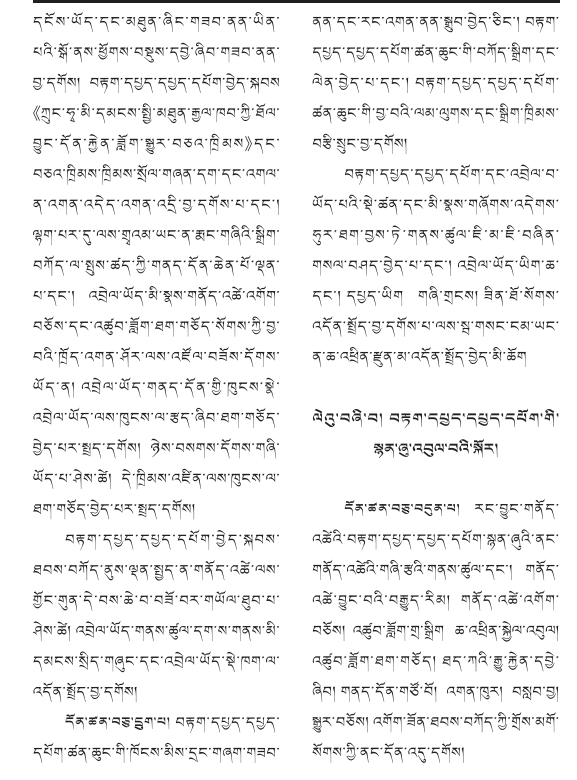 དངོས་ཡོད་དང་མཐུན་ཞིང་གཟབ་ནན་ཡིན་
པའི་སྒོ་ནས་ཕྱོགས་བསྡུས་དབྱེ་ཞིབ་གཟབ་ནན་
བྱ་དགོས། བརྟག་དཔྱད་དཔྱད་དཔོག་བྱེད་སྐབས
《ཀྲུང་ཧྭ་མི་དམངས་སྤྱི་མཐུན་རྒྱལ་ཁབ་ཀྱི་ཐོལ་
བྱུང་དོན་རྐྱེན་ཟློག་སྒྱུར་བཅའ་ཁྲིམས》དང་
བཅའ་ཁྲིམས་ཁྲིམས་སྲོལ་གཞན་དག་དང་འགལ་
ན་འགན་འདེད་འགན་འདྲི་བྱ་དགོས་པ་དང་།
ལྷག་པར་དུ་ལས་གྲྭའམ་ཡང་ན་རྨང་གཞིའི་སྒྲིག་
བཀོད་ལ་སྤུས་ཚད་ཀྱི་གནད་དོན་ཆེན་པོ་ལྡན་
པ་དང་། འབྲེལ་ཡོད་མི་སྣས་གནོད་འཚེ་འགོག་
བཅོས་དང་འཚུབ་ཟློག་ཐག་གཅོད་སོགས་ཀྱི་བྱ་
བའི་ཁྲོད་འགན་ཤོར་ལས་འཛོལ་བཟོས་དོགས་
ཡོད་ན། འབྲེལ་ཡོད་གནད་དོན་གྱི་ཁུངས་སྣེ་
འབྲེལ་ཡོད་ལས་ཁུངས་ལ་རྩད་ཞིབ་ཐག་གཅོད་
བྱེད་པར་སྤྲད་དགོས། ཉེས་བསགས་དོགས་གཞི་
ཡོད་པ་ཤེས་ཚེ། དེ་ཁྲིམས་འཛིན་ལས་ཁུངས་ལ་
ཐག་གཅོད་བྱེད་པར་སྤྲད་དགོས།
བརྟག་དཔྱད་དཔྱད་དཔོག་བྱེད་སྐབས་
ཐབས་བཀོད་ནུས་ལྡན་སྤྱད་ན་གནོད་འཚེ་ལས་
གྱོང་གུན་དེ་བས་ཆེ་བ་བཟོ་བར་གཡོལ་ཐུབ་པ་
ཤེས་ཚེ། འབྲེལ་ཡོད་གནས་ཚུལ་དག་ས་གནས་མི་
དམངས་སྲིད་གཞུང་དང་འབྲེལ་ཡོད་སྡེ་ཁག་ལ་
འདོན་སྤྲོད་བྱ་དགོས།
དོན་ཚན་བཅུ་དྲུག་པ། བརྟག་དཔྱད་དཔྱད་
དཔོག་ཚན་ཆུང་གི་ཁོངས་མིས་དྲང་གཞག་གཟབ་
ནན་དང་རང་འགན་ནན་སྒྲུབ་བྱེད་ཅིང་། བརྟག་
དཔྱད་དཔྱད་དཔོག་ཚན་ཆུང་གི་བཀོད་སྒྲིག་དང་
ལེན་བྱེད་པ་དང་། བརྟག་དཔྱད་དཔྱད་དཔོག་
ཚན་ཆུང་གི་བྱ་བའི་ལམ་ལུགས་དང་སྒྲིག་ཁྲིམས་
བརྩི་སྲུང་བྱ་དགོས།
བརྟག་དཔྱད་དཔྱད་དཔོག་དང་འབྲེལ་བ་
ཡོད་པའི་སྡེ་ཚན་དང་མི་སྣས་གཞོགས་འདེགས་
ཧུར་ཐག་བྱས་ཏེ་གནས་ཚུལ་ཇི་མ་ཇི་བཞིན་
གསལ་བཤད་བྱེད་པ་དང་། འབྲེལ་ཡོད་ཡིག་ཆ་
དང་། དཔྱད་ཡིག གཞི་གྲངས། ཟིན་ཐོ་སོགས་
འདོན་སྤྲོད་བྱ་དགོས་པ་ལས་སྦ་གསང་ངམ་ཡང་
ན་ཆ་འཕྲིན་རྫུན་མ་འདོན་སྤྲོད་བྱེད་མི་ཆོག
ལེའུ་བཞི་བ། བརྟག་དཔྱད་དཔྱད་དཔོག་གི་
སྙན་ཞུ་འབུལ་བའི་སྐོར།
དོན་ཚན་བཅུ་བདུན་པ། རང་བྱུང་གནོད་
འཚེའི་བརྟག་དཔྱད་དཔྱད་དཔོག་སྙན་ཞུའི་ནང་
གནོད་འཚེའི་གཞི་རྩའི་གནས་ཚུལ་དང་། གནོད་
འཚེ་བྱུང་བའི་བརྒྱུད་རིམ། གནོད་འཚེ་འགོག་
བཅོས། འཚུབ་ཟློག་གྲ་སྒྲིག ཆ་འཕྲིན་སྐྱེལ་འབུལ།
འཚུབ་ཟློག་ཐག་གཅོད། ཐད་ཀའི་རྒྱུ་རྐྱེན་དབྱེ་
ཞིབ། གནད་དོན་གཙོ་བོ། འགན་ཁུར། བསླབ་བྱ།
སྒྱུར་བཅོས། འགོག་ཟོན་ཐབས་བཀོད་ཀྱི་གྲོས་མགོ་
སོགས་ཀྱི་ནང་དོན་འདུ་དགོས།